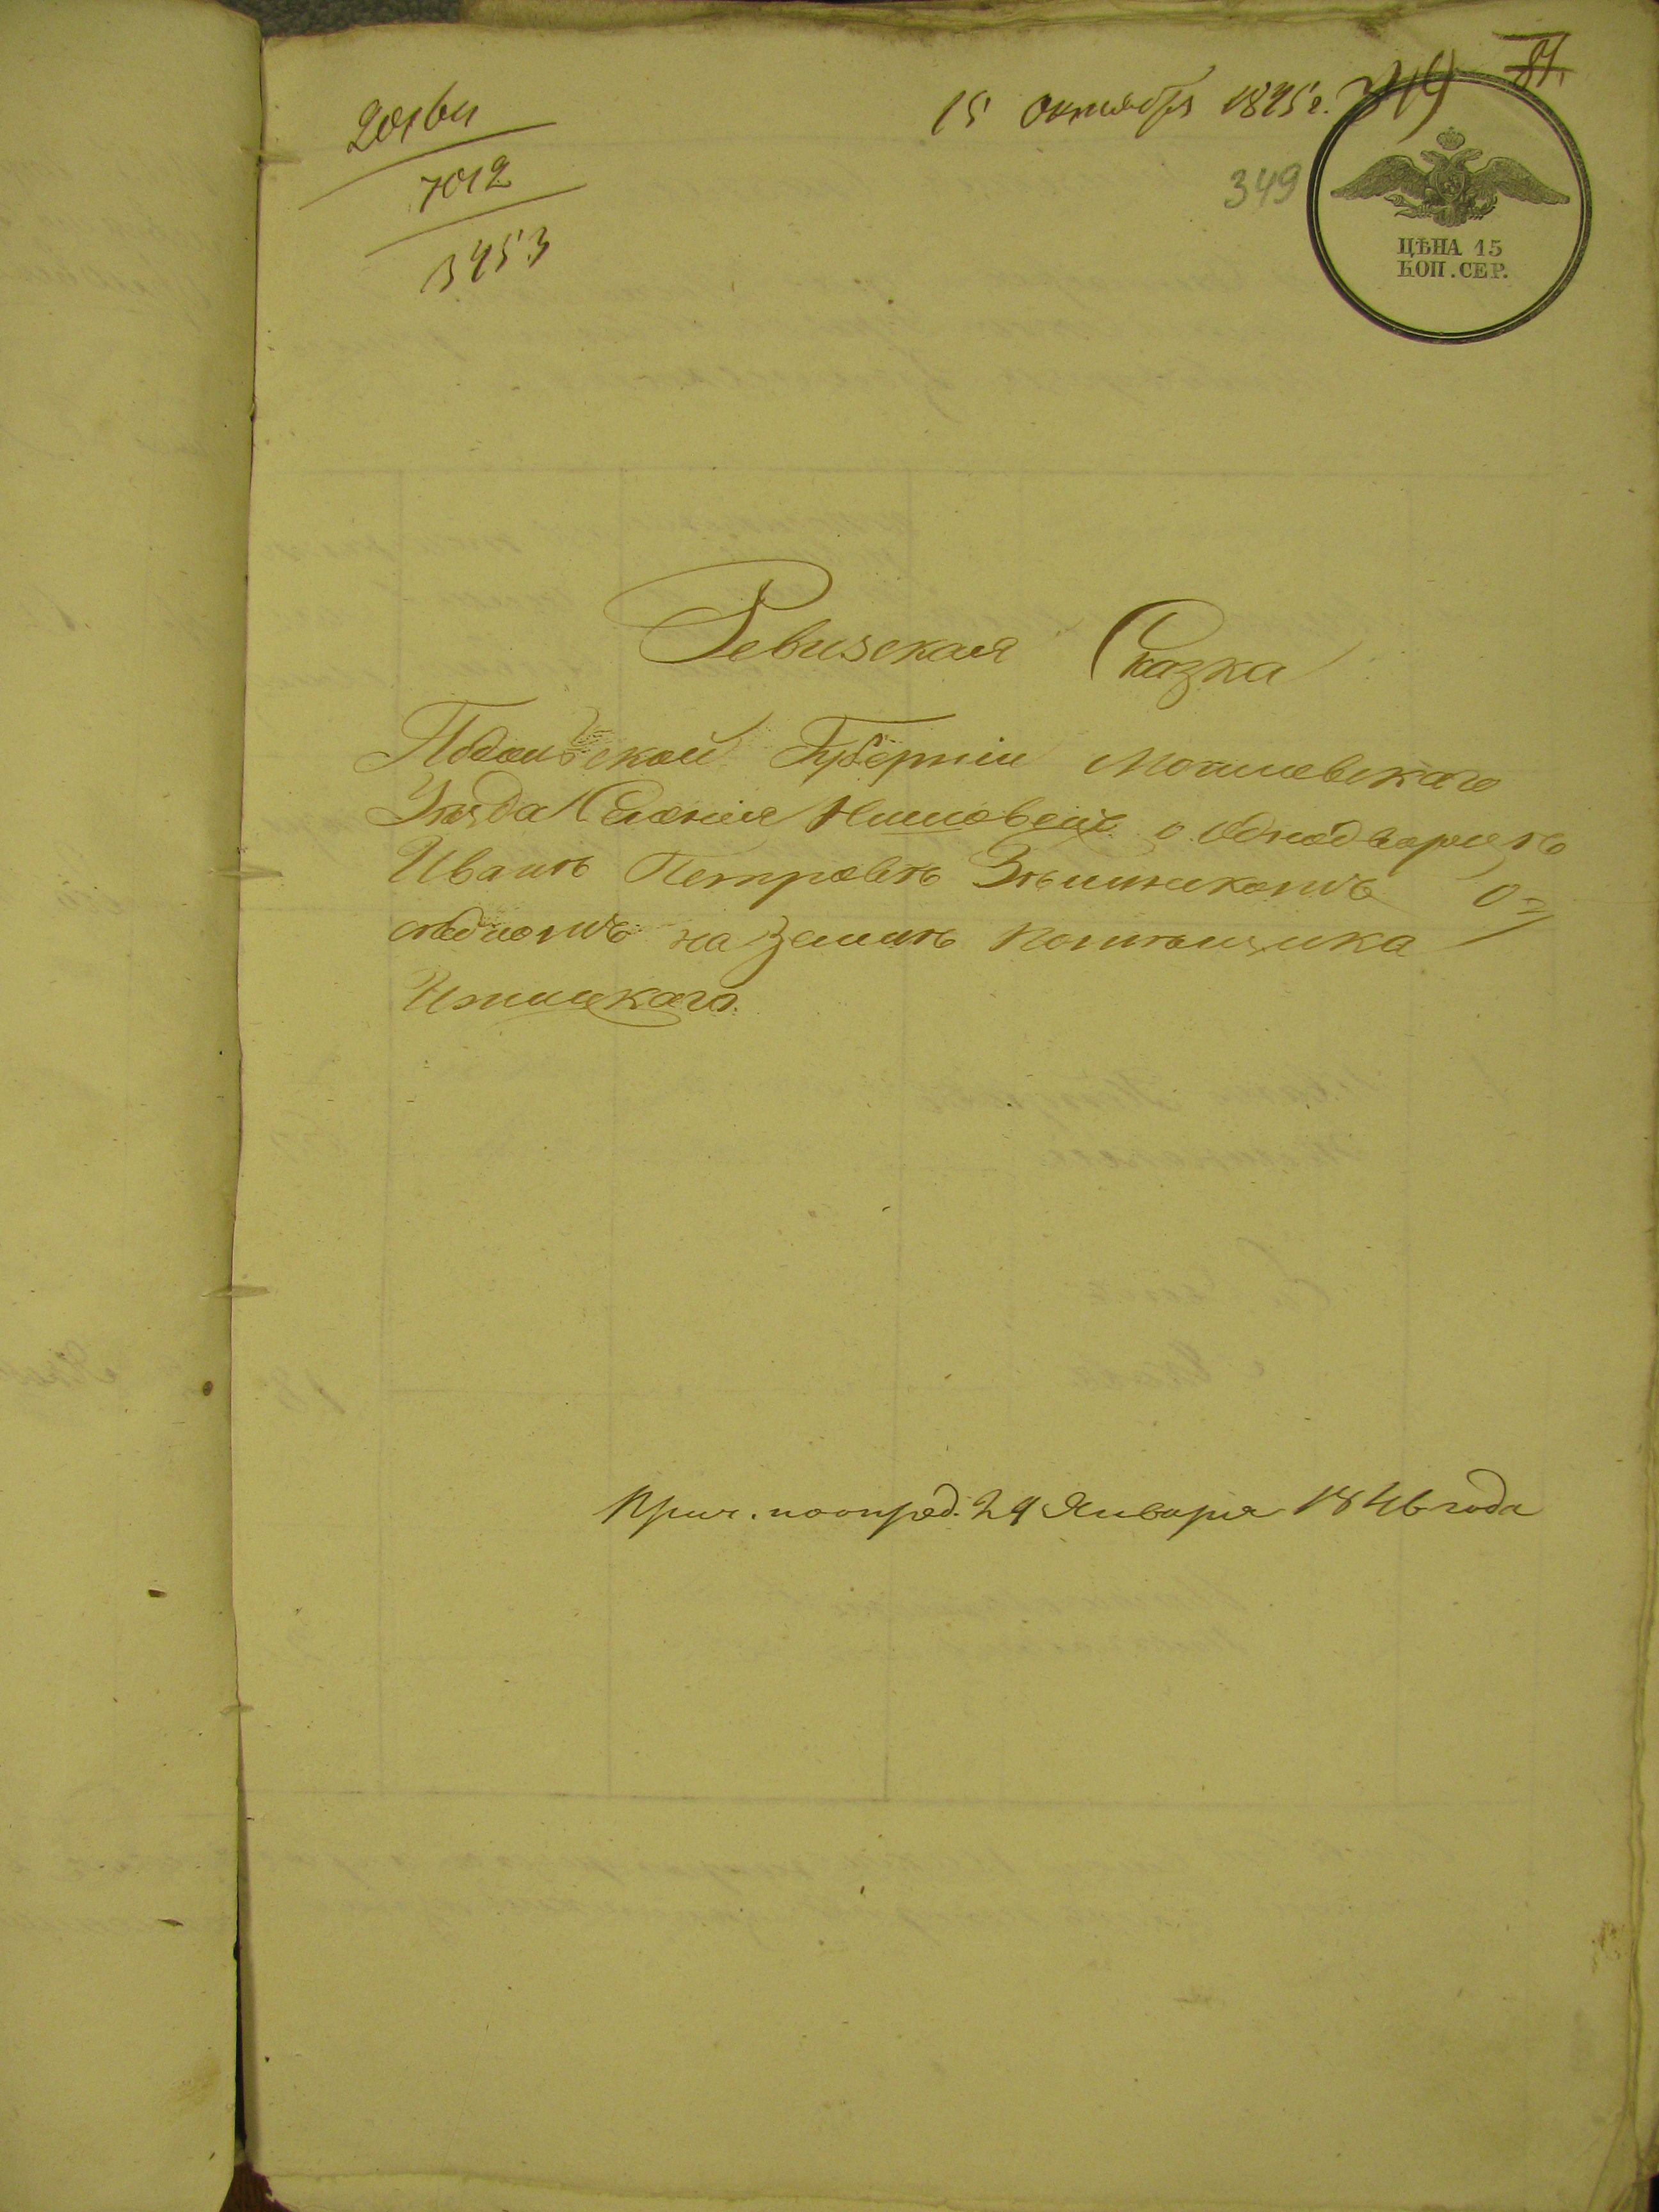 20164
7012
3453
15 Октября 1845 г.
349
ЦѢНА 15
КОП. СЕР.
Ревизская Сказка
Подольской Губерніи Могилевскаго
Уѣзда Селенія о однодворцѣ
Иванѣ Петровѣ о-
сѣдломъ на землѣ помѣщика
Прич. по опред. 24 Января 1846 года